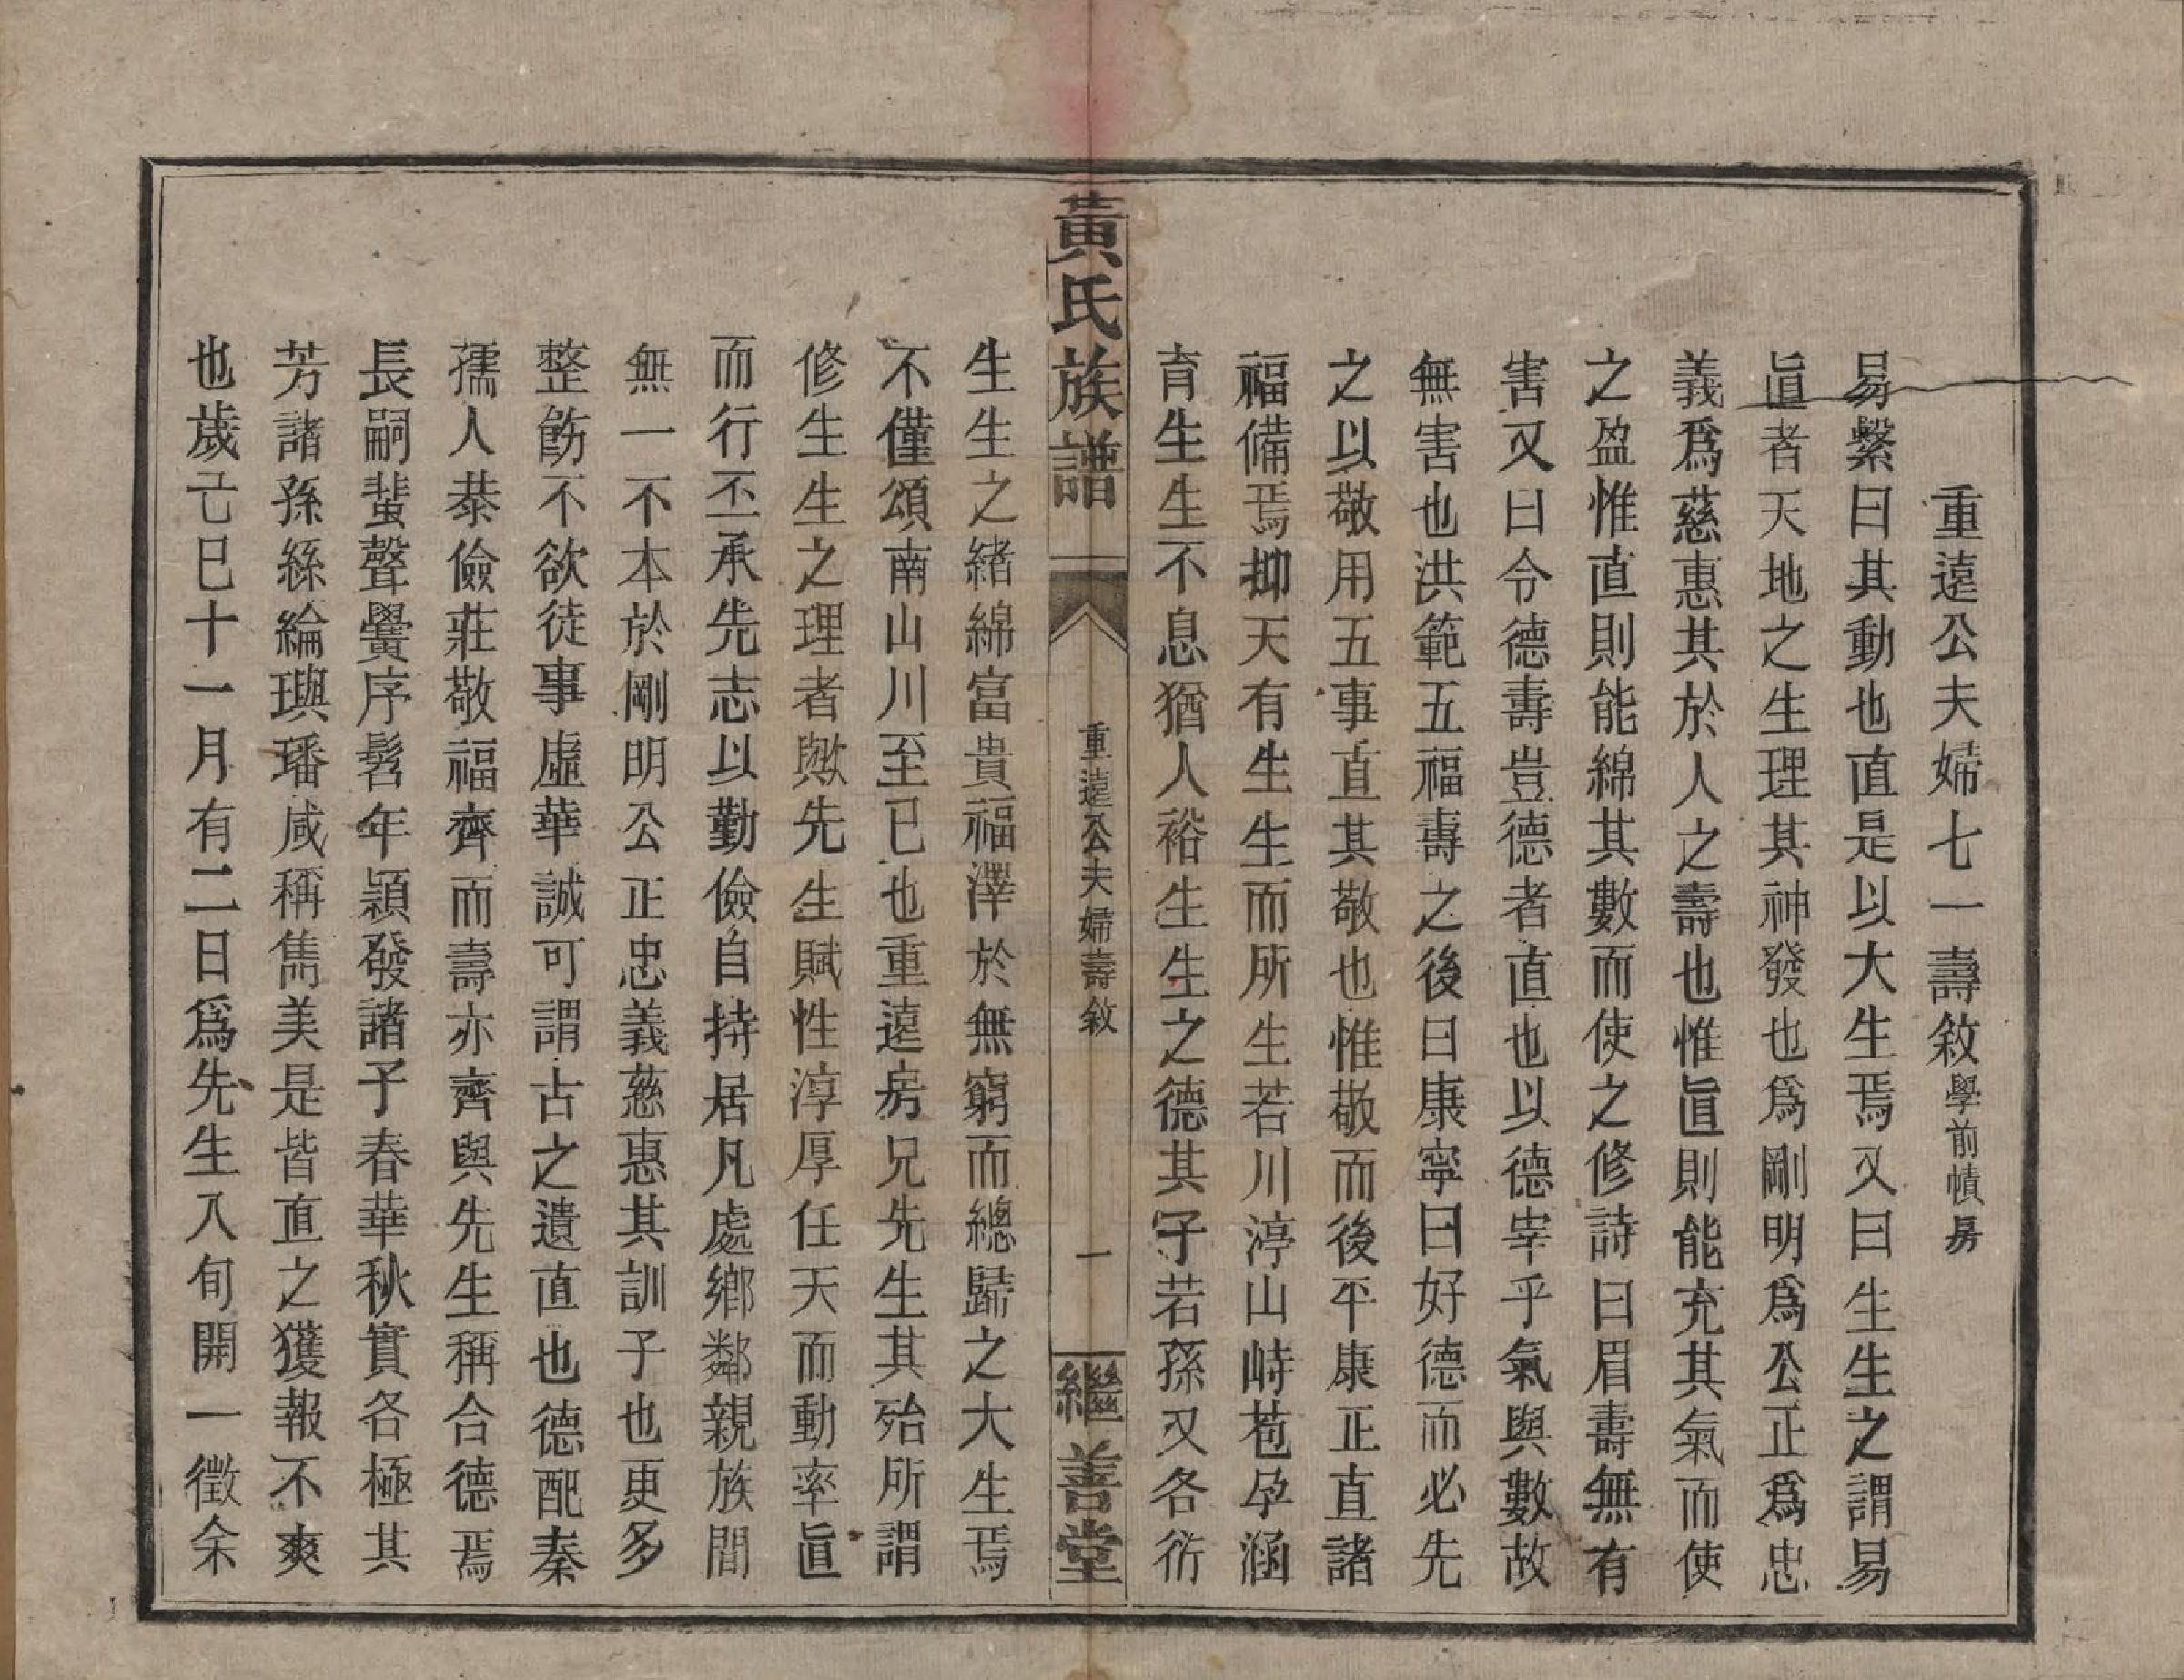 重遠公夫婦七一壽敘學前幘房
易繫曰其動也直是以大生焉又曰生生之謂易
直者天地之生理其神發也爲剛明爲公正爲忠
義爲慈惠其於人之壽也惟直則能充其氣而使
之盈惟直則能綿其數而使之修詩曰眉壽無有
害又曰令德壽豈德者直也以德宰乎氣與數故
無害也洪範五福壽之後曰康寧曰好德而必先
之以敬用五事直其敬也惟敬而後平康正直諸
福備焉抑天有生生而所生若川渟山峙苞孕涵
育生生不息猶人裕生生之德其子若孫又各衍
黃氏族譜 重遠公夫婦壽敘 一 繼善堂
生生之緒綿富貴福澤於無窮而總歸之大生焉
不僅頌南山川至已也重遠房兄先生其殆所謂
修生生之理者歟先生賦性淳厚任天而動率直
而行丕承先志以勤儉自持居凡處鄉鄰親族間
無一不本於剛明公正忠義慈惠其訓子也更多
整飭不欲徒事虛華誠可謂古之遺直也德配秦
孺人恭儉莊敬福齊而壽亦齊與先生稱合德焉
長嗣蜚聲黌序髫年穎發諸予春華秋實各極其
芳諸孫絲綸璵璠咸稱雋美是皆直之獲報不爽
也歲己巳十一月有二日爲先生八旬開一徵余